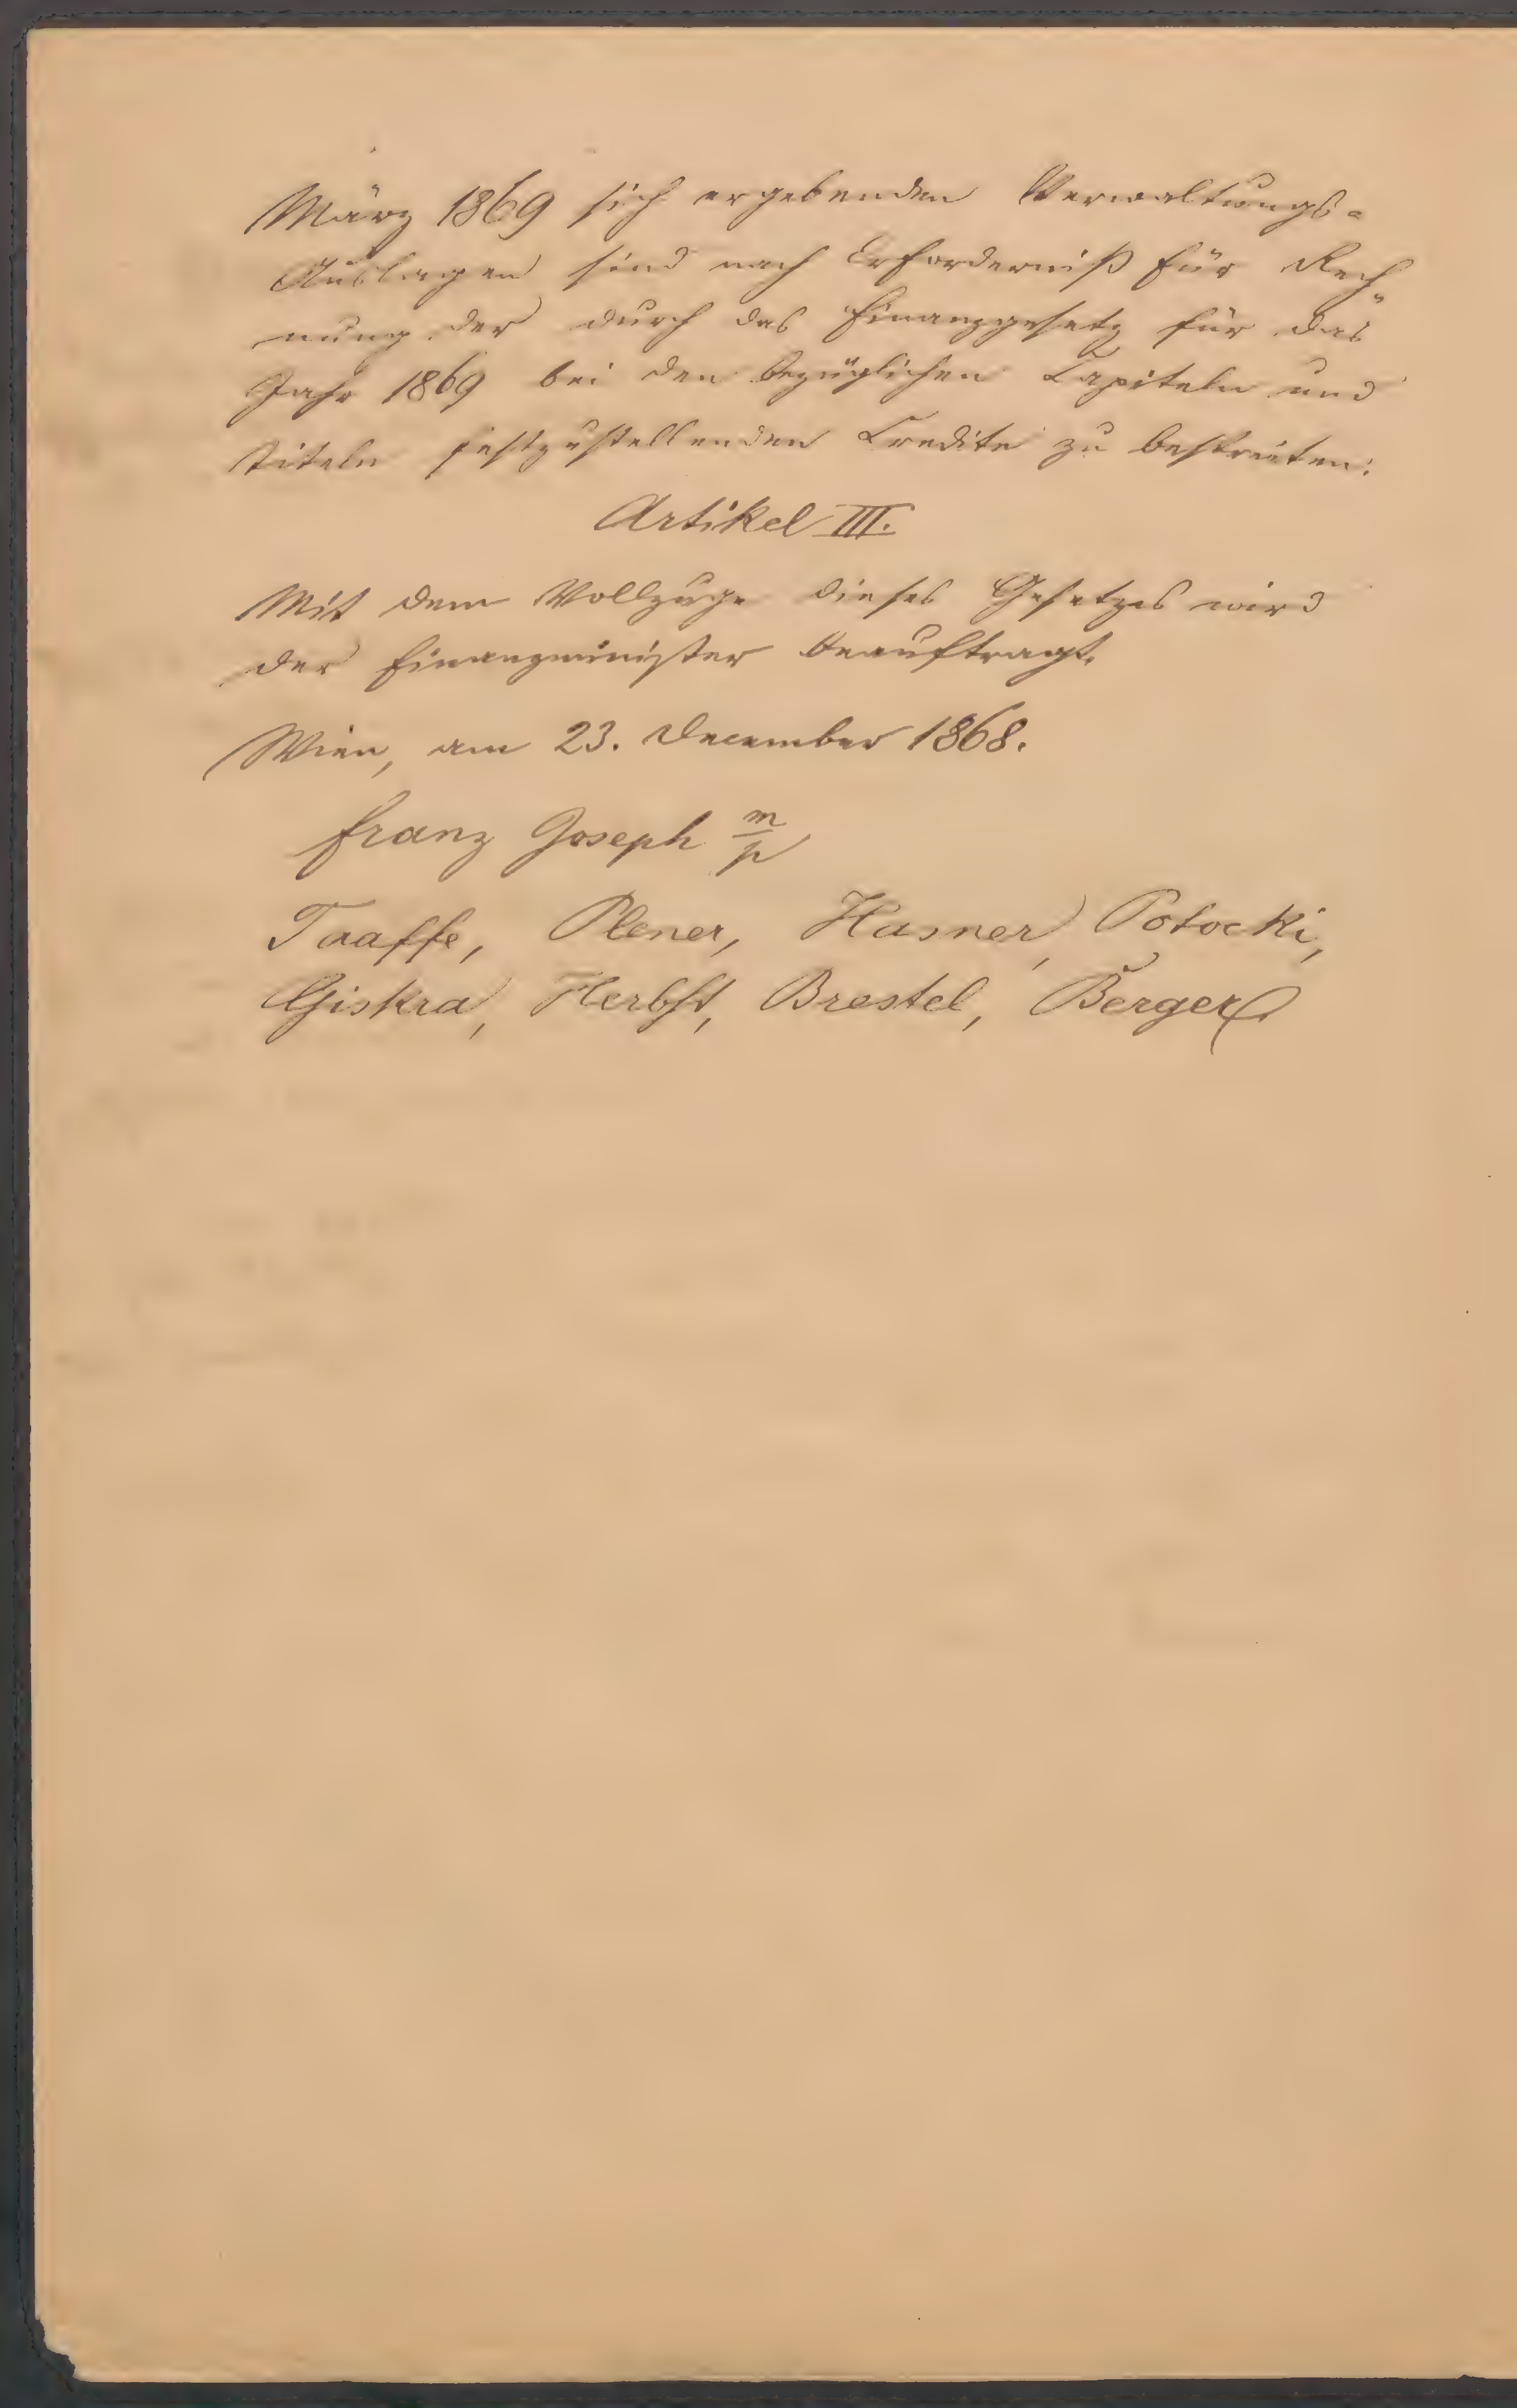 März 1869 sich ergebenden Verwaltungs=
Auslagen sind nach Erforderniß für Rech=
nung der durch das Finanzgesetz für das
Jahr 1869 bei den bezüglichen Capiteln und
Titeln festzustellenden Credite zu bestreiten.
Artikel III.
Mit dem Vollzuge dieses Gesetzes wird
der Finanzminister beauftragt.
Wien, am 23. December 1868.
Franz Joseph m/p
Taaffe, Plener, Hasner, Potocki,
Giskra, Herbst, Brestel, Berger